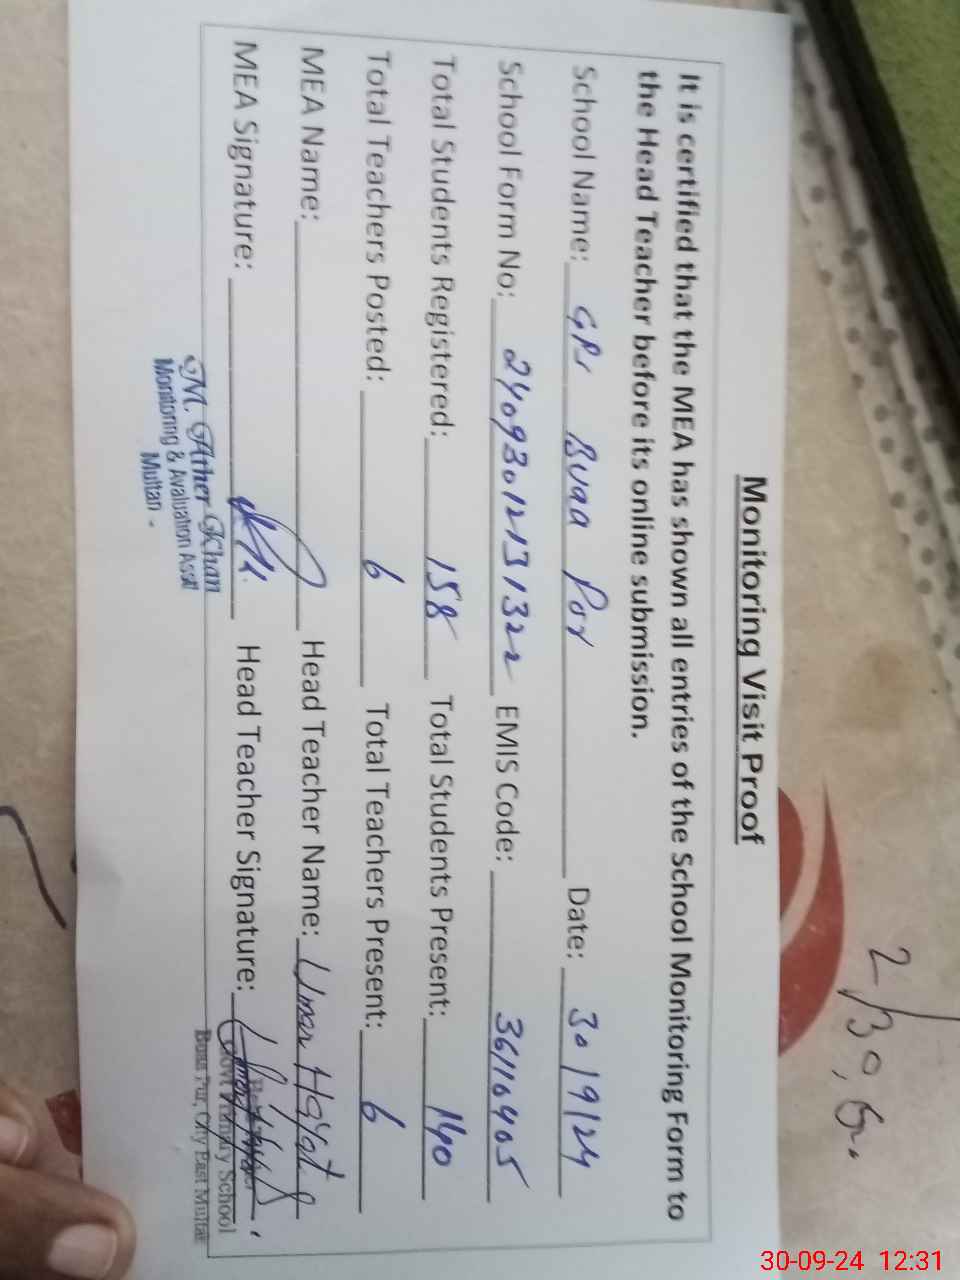 Monitoring Visit Proof
It is certified that the MEA has shown all entries of the School Monitoring Form to
the Head Teacher before its online submission.
School Name: GPS Buaa Por Date: 30/9/24
School Form No: 24093012131322 EMIS Code: 36110405
Total Students Registered: 158 Total Students Present: 140
Total Teachers Posted: 6 Total Teachers Present: 6
MEA Name: Head Teacher Name: Umar Hayat
MEA Signature: Head Teacher Signature:
M. Ather Khan
Monitoring & Avaluation Asstt
Multan -
Govt Primary School
Bosa Pur, City East Multan
30-09-24 12:31